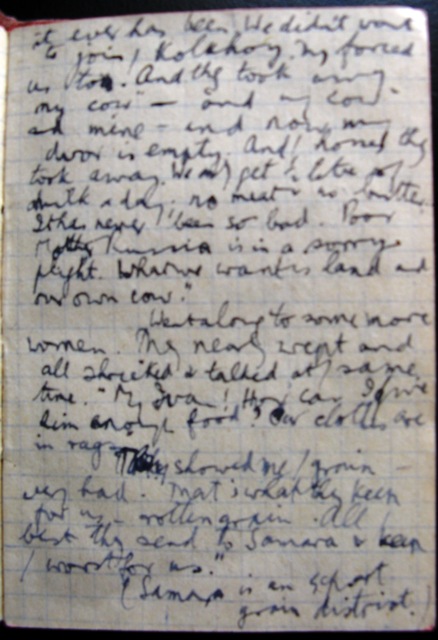 it ever has been. We didn't want
to join / Kolkhoz. They forced
us to. And they took away
my cow" — "and my cow."
"and mine — and now my
dvor is empty. And / horses they
took away. We only get ½ litre of
milk a day. no meat no butter.
It has never been so bad. Poor
Mother Russia is in a sorry
plight. What we want is land and
our own cow."
Went along to some more
women. They nearly wept and
all shouted & talked at / same
time. "My Ivan! How can I give
him enough food? Our clothes are
in rags.
They showed me / grain –
very bad. "That's what they keep
for us – rotten grain. All /
best they send to Samara & keep
/ worst for us."
(Samara is an export
grain district.)